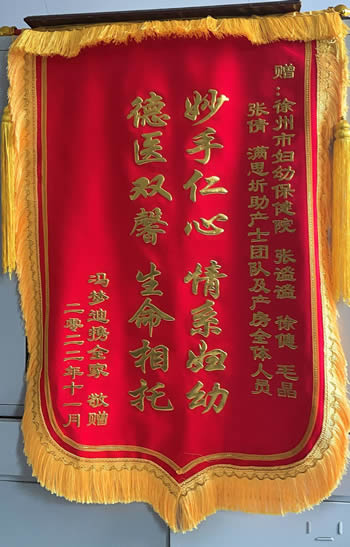 赠:徐州市妇幼保健院 张谧谧 徐健 毛晶
张倩 满思圻助产士团队及产房全体人员
妙手仁心 情系妇幼
德医双馨 生命相托
冯梦迪携全家 敬赠
二零二二年十一月